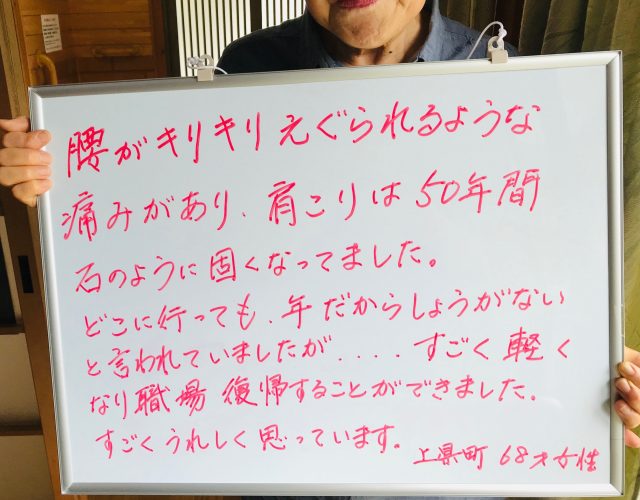 腰がキリキリえぐられるような
痛みがあり、肩こりは50年間
石のように固くなってました。
どこに行っても、年だからしょうがない
と言われていましたが....すごく軽く
なり職場復帰することができました。
すごくうれしく思っています。
上県町 68才女性